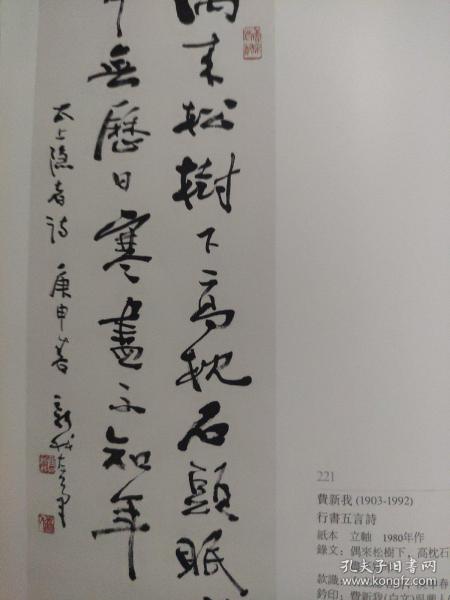 偶來松樹下高枕石頭眠
中無歷日寒盡不知年
太上隐者诗 庚申春 新我左筆
221
費新我 (1903-1992)
行書五言詩
紙本 立軸 1980年作
錄文：偶來松樹下，高枕石
款識：
鈐印：費新我(白文)吳興人(
孔夫子旧书网